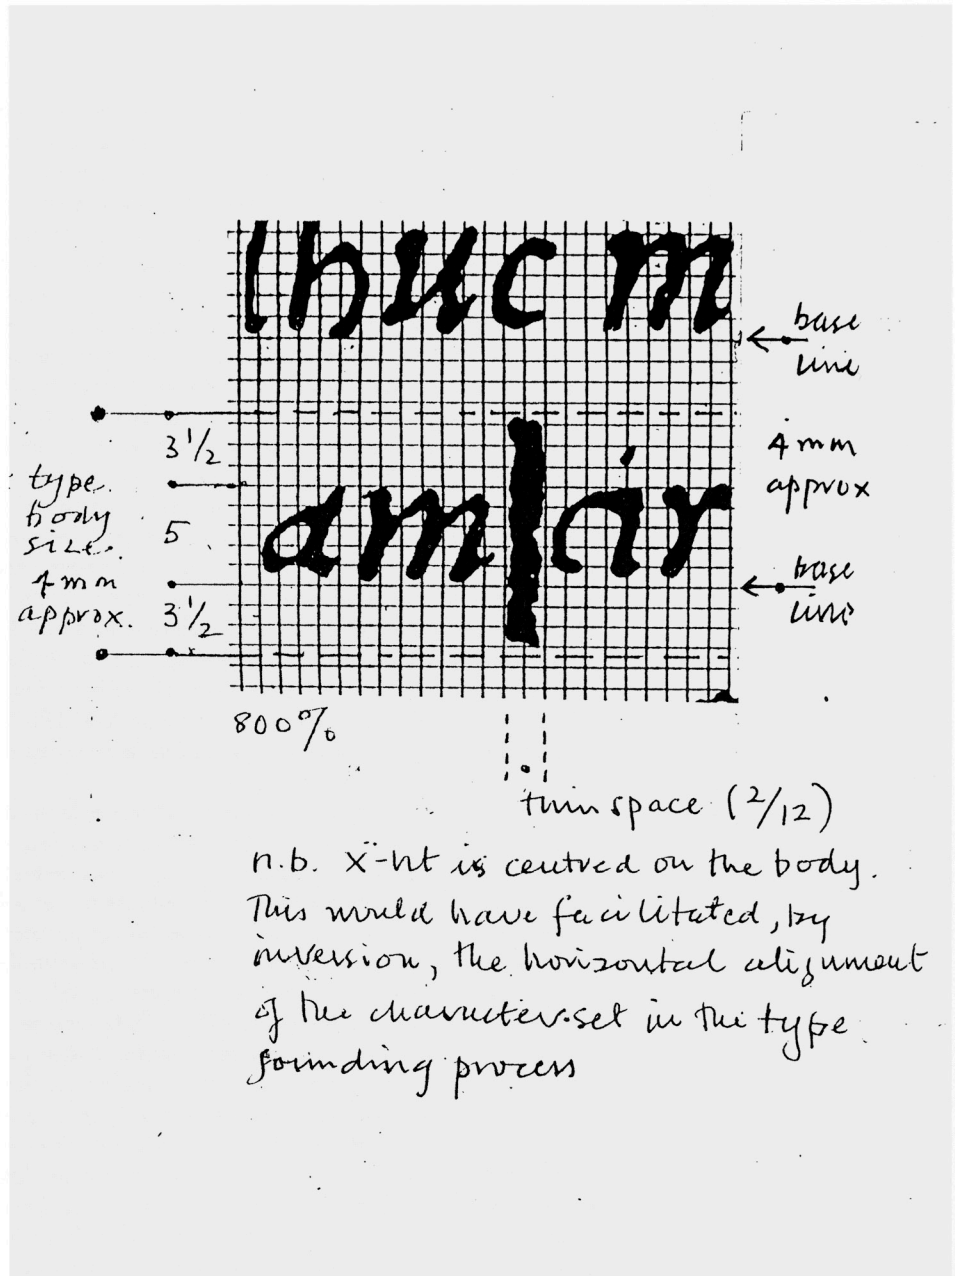 lhuc m
base
line
3 1/2
4 mm
approx
type
body
size.
4 mm
approx.
am air
5
base
line
3 1/2
800%
thin space (2/12)
n.b. x-ht is centred on the body.
This would have facilitated, by
inversion, the horizontal alignment
of the character set in the type
founding process